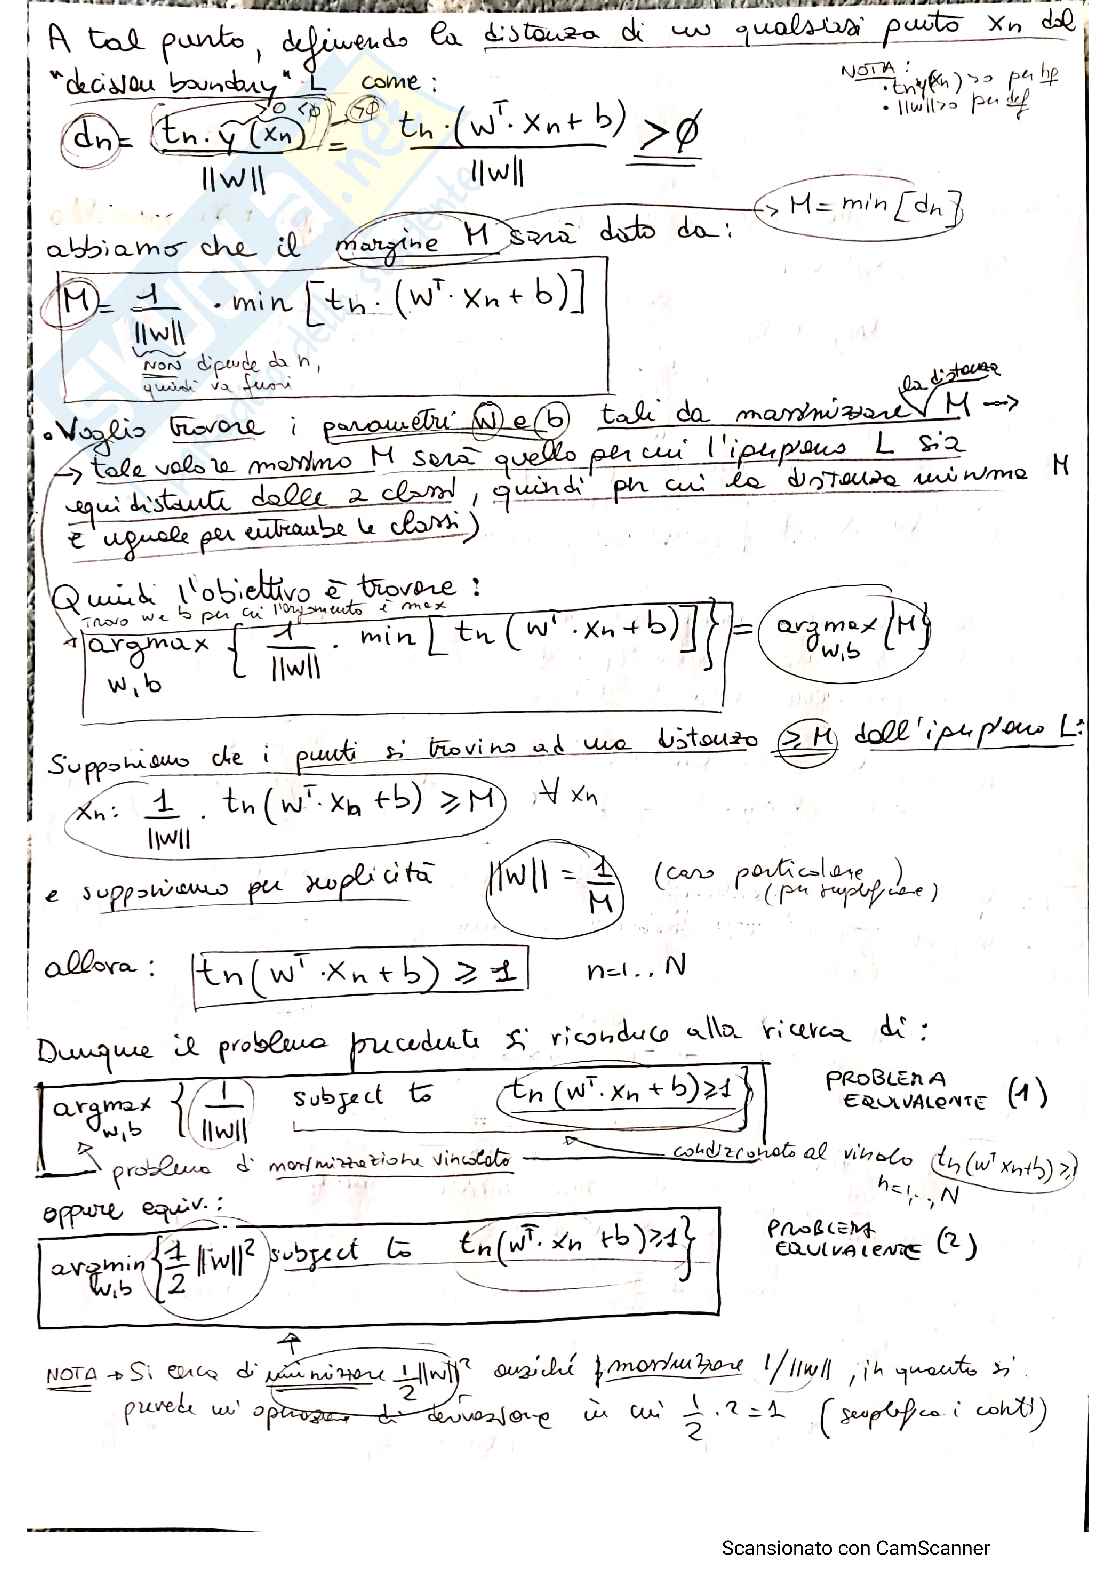 A tal punto, definendo la distanza di un qualsiasi punto xn dal
"decision boundary" L come:
NOTA:
• tn y(xn) >0 per hp
• ||w||>0 per def
>0 <0 >∅
dn = tn · y(xn) / ||w|| = tn · (wᵀ · xn + b) / ||w|| > ∅
→ M = min [dn]
abbiamo che il margine M sarà dato da:
M = 1/||w|| · min [tn · (wᵀ · xn + b)]
NON dipende da n,
quindi va fuori
la distanza
• Voglio trovare i parametri w e b tali da massimizzare M →
→ tale valore massimo M sarà quello per cui l'iperpiano L sia
equidistante dalle 2 classi, quindi per cui la distanza minima M
è uguale per entrambe le classi)
Quindi l'obiettivo è trovare:
Trovo w e b per cui l'argomento è max
argmax w,b { 1/||w|| · min [ tn (wᵀ · xn + b) ] } = argmax w,b {M}
Supponiamo che i punti si trovino ad una distanza ≥ M dall'iperpiano L:
xn: 1/||w|| · tn (wᵀ · xn + b) ≥ M ∀ xn
e supponiamo per semplicità ||w|| = 1/M (caso particolare)
(per semplificare)
allora: tn (wᵀ · xn + b) ≥ 1 n=1.. N
Dunque il problema precedente si riconduce alla ricerca di:
argmax w,b { 1/||w|| subject to tn (wᵀ · xn + b) ≥ 1 } PROBLEMA
EQUIVALENTE (1)
problema di massimizzazione vincolato condizionato al vincolo tn (wᵀ xn + b) ≥
n=1,..,N
oppure equiv.:
argmin w,b { 1/2 ||w||² subject to tn (wᵀ · xn + b) ≥ 1 } PROBLEMA
EQUIVALENTE (2)
NOTA → Si cerca di minimizzare 1/2 ||w||² anziché massimizzare 1/||w||, in quanto si
prevede un' operazione di derivazione in cui 1/2 · 2 = 1 (semplifica i conti)
Scansionato con CamScanner